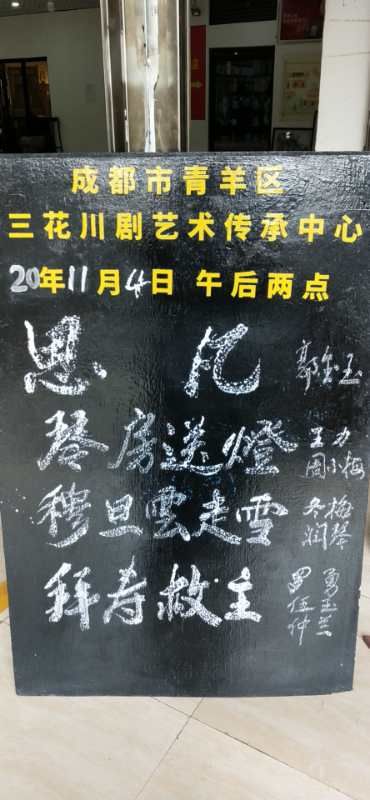 成都市青羊区
三花川剧艺术传承中心
20年11月4日 午后两点
思凡 郭金玉
琴房送燈 王力 周小梅
穆旦雲走雪 冬梅 润琴
拜寿救主 罗勇 伍玉兰 仲